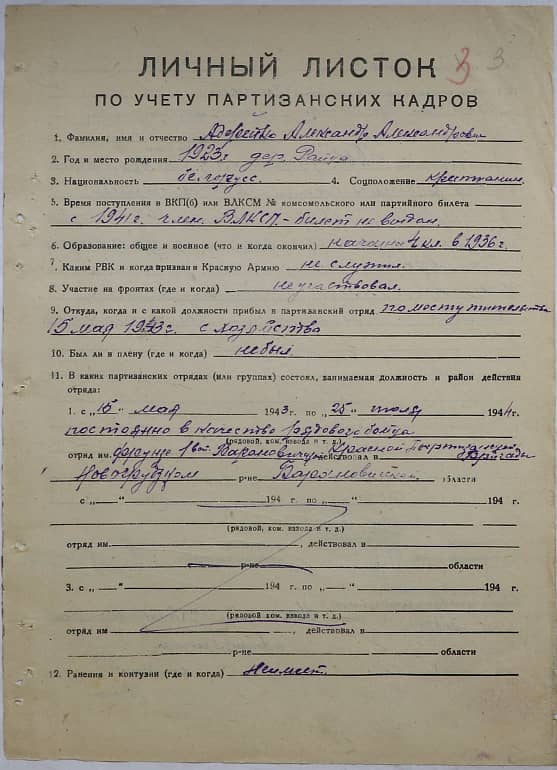 3 3
ЛИЧНЫЙ ЛИСТОК
ПО УЧЕТУ ПАРТИЗАНСКИХ КАДРОВ
1. Фамилия, имя и отчество Александр Александрович
2. Год и место рождения 1923г дер.
3. Национальность белорусс. 4. Соцположение крестьянин.
5. Время поступления в ВКП(б) или ВЛКСМ № комсомольского или партийного билета
с 1941г. член ВЛКСМ - билет не выдан.
6. Образование: общее и военное (что и когда окончил) 4 кл. в 1936 г.
7. Каким РВК и когда призван в Красную Армию не служил.
8. Участие на фронтах (где и когда) не участвовал.
9. Откуда, когда и с какой должности прибыл в партизанский отряд
15 мая 1943г. с хозяйства
10. Был ли в плену (где и когда) не был
11. В каких партизанских отрядах (или группах) состоял, занимаемая должность и район действия
отряда:
1. с „15“ мая 1943 г. по „25“ июля 1944 г.
постоянно в качестве рядового бойца
(рядовой, ком. взвода и т. д.)
отряд им. Фрунзе 1 действовал в бригады
р-не области
с „ “ 194 г. по „ “ 194 г.
(рядовой, ком. взвода и т. д.)
отряд им. , действовал в
р-не области
3. с „ “ 194 г. по „ “ 194 г.
(рядовой, ком. взвода и т. д.)
отряд им , действовал в
р-не области
12. Ранения и контузии (где и когда) Не имеет.